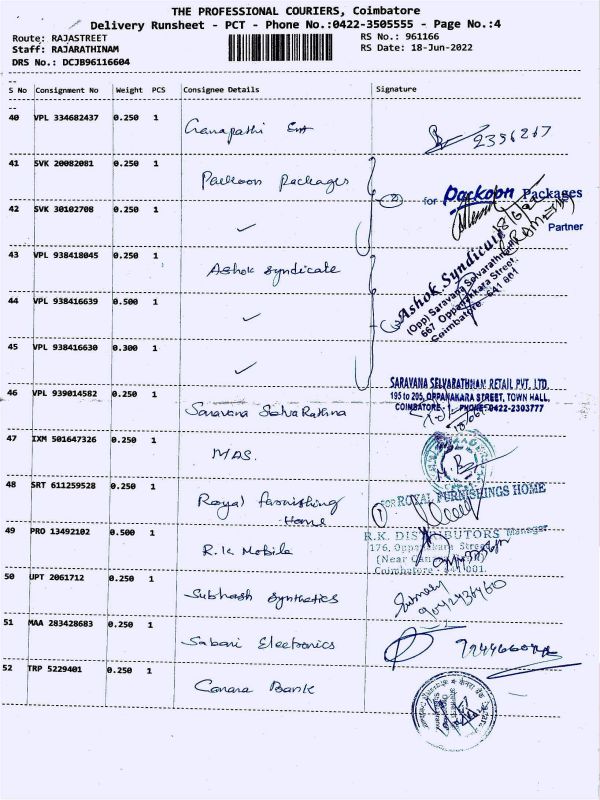 THE PROFESSIONAL COURIERS, Coimbatore
Delivery Runsheet - PCT - Phone No.:0422-3505555 - Page No.:4
Route: RAJASTREET
RS No.: 961166
Staff: RAJARATHINAM
RS Date: 18-Jun-2022
DRS No.: DCJB96116604
S No Consignment No Weight PCS Consignee Details Signature
40 VPL 334682437 0.250 1 Ganapathi Ent
41 SVK 20082081 0.250 1 Packoon Packages
for Packoon Packages
42 SVK 30102708 0.250 1 ✓
Partner
43 VPL 938418045 0.250 1 Ashok Syndicate
Ashok Syndicate
(Opp) Saravana Selvarathnam
667, Oppanakara Street,
Coimbatore - 641 001
44 VPL 938416639 0.500 1 ✓
45 VPL 938416630 0.300 1 ✓
SARAVANA SELVARATHNAM RETAIL PVT. LTD.
195 to 205, OPPANAKARA STREET, TOWN HALL,
COIMBATORE. PHONE: 0422-2303777
46 VPL 939014582 0.250 1 Saravana Selva Rathna
47 IXM 501647326 0.250 1 MAS.
48 SRT 611259528 0.250 1 Royal furnishing Home
FOR ROYAL FURNISHINGS HOME
Manager
49 PRO 13492102 0.500 1 R.K Mobile
R.K. DISTRIBUTORS
176, Oppanakara Street
Coimbatore - 641 001.
50 UPT 2061712 0.250 1 Subhash Synthetics
51 MAA 283428683 0.250 1 Sabari Electronics
52 TRP 5229401 0.250 1 Canara Bank